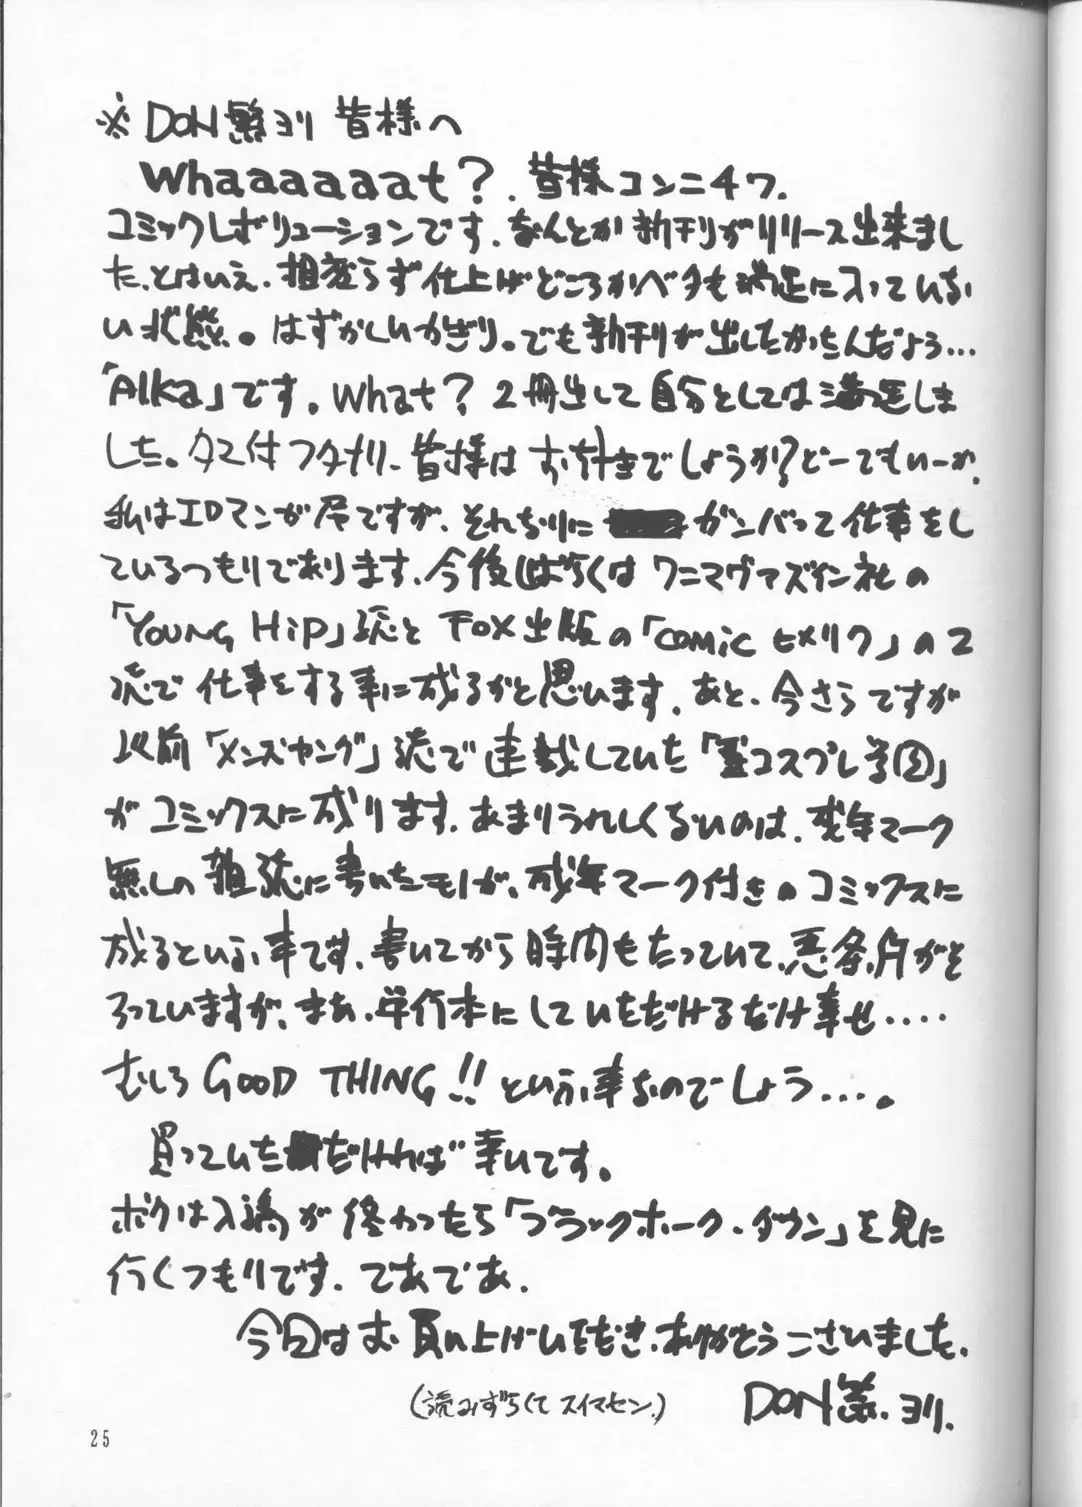 ※ DON繁ヨリ 皆様へ
Whaaaaaaat?. 皆様コンニチワ.
コミックレボリューションです. なんとか新刊がリリース出来まし
た. とはいえ. 相変らず仕上げどころかベタも満足に入っていな
い状態。はずかしいかぎり。でも新刊が出したかったんだよう…
「Alka」です。What? 2冊出して自分としては満足しま
した。タマ付フタナリ. 皆様はお好きでしょうか? どーでもいーか.
私はエロマンガ屋ですが. それなりに ガンバって仕事をし
ているつもりであります. 今後しばらくはワニマガジン社の
「YOUNG HiP」誌と FOX出版の「COMiC ヒメクリ」の2
誌で仕事をする事に成るかと思います. あと. 今さらですが
以前「メンズヤング」誌で連載していた「コスプレ学園」
がコミックスに成ります. あまりうれしくないのは. 成年マーク
無しの雑誌に書いたモノが、成年マーク付きのコミックスに
成るという事です. 書いてから時間もたっていて、悪条件がそ
ろっていますが、まあ. 単行本にしていただけるだけ幸せ‥‥
むしろ GOOD THING!! という事なのでしょう….。
買っていただければ幸いです。
ボクは入稿が終わったら「ブラックホーク・ダウン」を見に
行くつもりです. であであ.
今回はお買い上げいただき. ありがとうございました.
(読みずらくてスイマセン.)
DON繁. ヨリ.
25